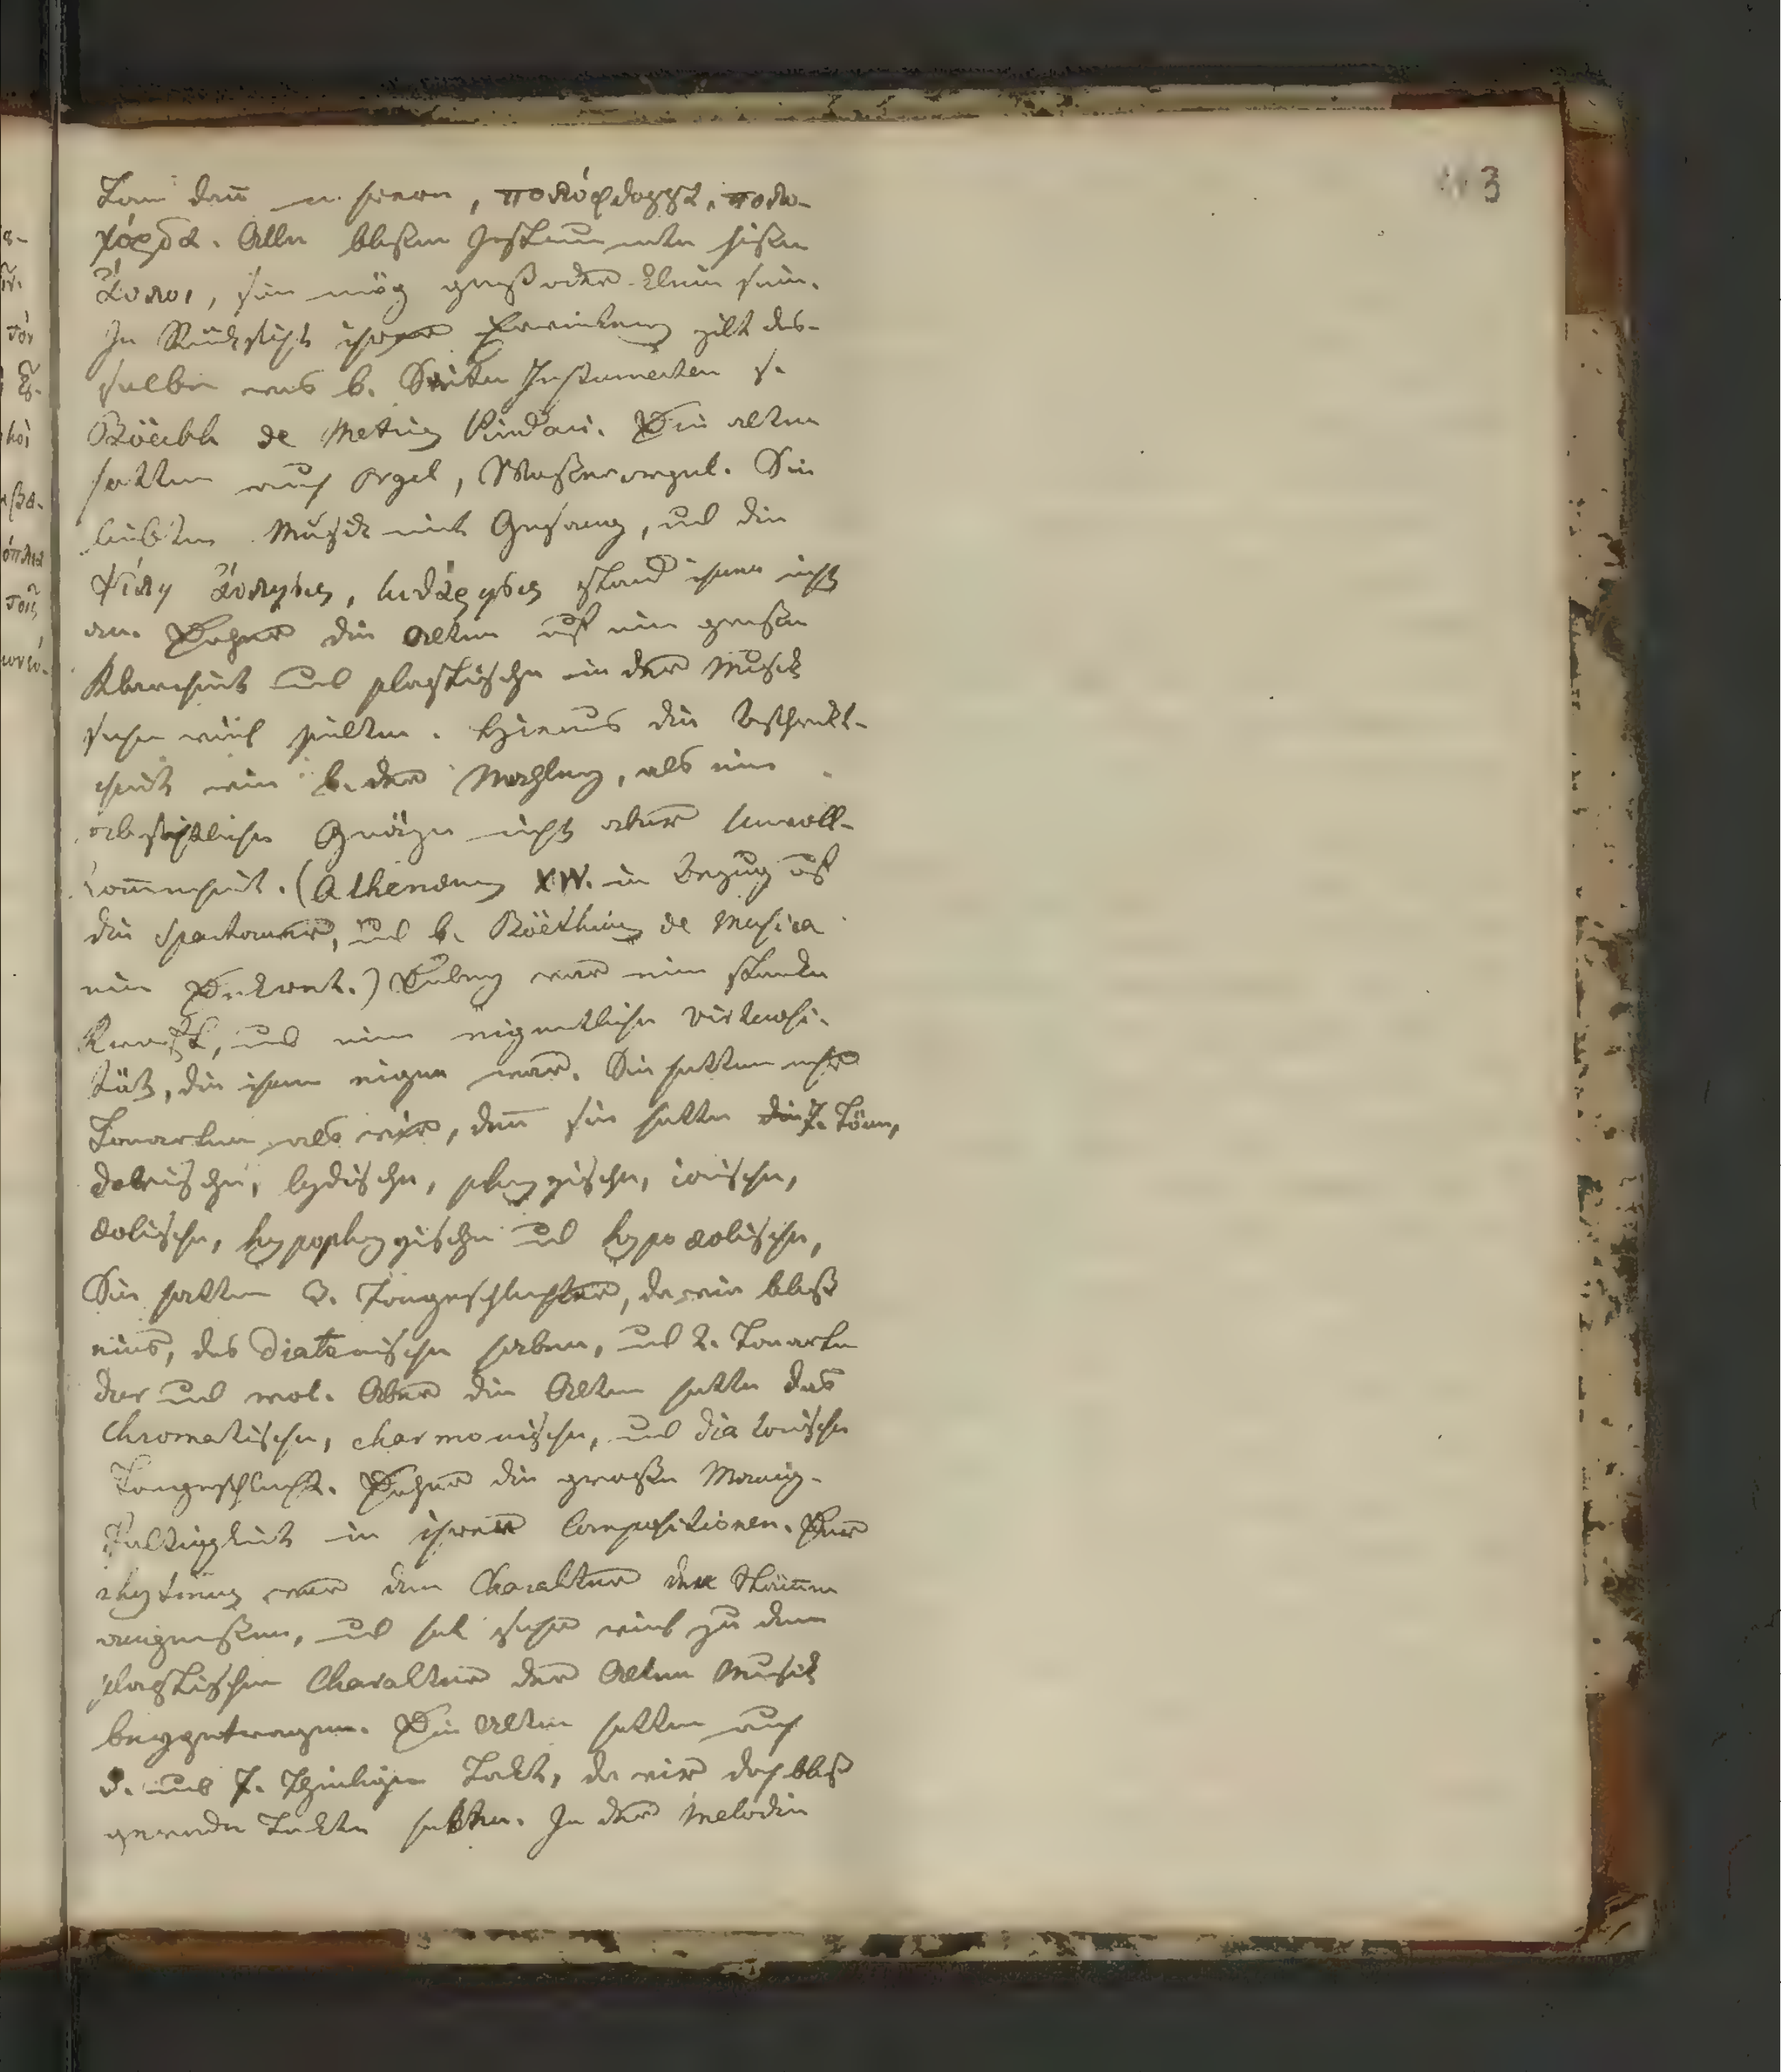 3
Ton dañ u. ſtern, πολύφθογγα, πολυ-
χόρδα. Alle blaßen Inſtrumente hießen
ἄυλοι, ſie mög groß oder klein ſein.
In Rückſicht ihrer gilt das-
ſelbe was b. Saiten Inſtrumenten ſ.
Böckh de Metris Pindari. Die alten
hatten auch Orgel, Waßerorgel. Sie
liebten Muſik mit Geſang, und die
ψίλη ἄυλησις, κιθάρησις ſtand ihnen nicht
an. Daher die Alten auf eine große
Klarheit und plaſtiſche in der Muſik
ſehr viel hielten. Hieraus die Beſchränkt-
heit wie b. der Mahlerey, als eine
abſichtliche Gränze nicht aber Unvoll-
kom̄enheit. (Athenæus XIV. in Bezug auf
die Spartaner, und b. Böethius de Muſica
ein Dekret.) Dieß war eine ſtarke
Kraft, und eine eigentliche Virtuoſi-
tät, die ihnen eigen war. Sie hatten mehr
Tonarten als wir, deñ ſie hatten die 7. Töne,
doriſche, lydiſche, phrygiſche, ioniſche,
æoliſche, hypophrygiſche und hypoæoliſche,
Sie hatten 3. Tongeſchlechter, da wir bloß
eins, das Diatoniſche haben, und 2. Tonarten
dur und mol. Aber die Alten hatten das
Chromatiſche, enharmoniſche, und diatoniſche
Tongeſchlecht. Daher die große Manig-
faltigkeit in ihren Compoſitionen. Der
rhytmus war dem Charakter der Stäm̄e
angemeßen, und hat ſehr viel zu dem
plaſtiſchen Charakter der Alten Muſik
beygetragen. Die Alten hatten auch
5. und 7. theiligen Takt, da wir doch bloß
gerade Takte hatten. In der Melodie